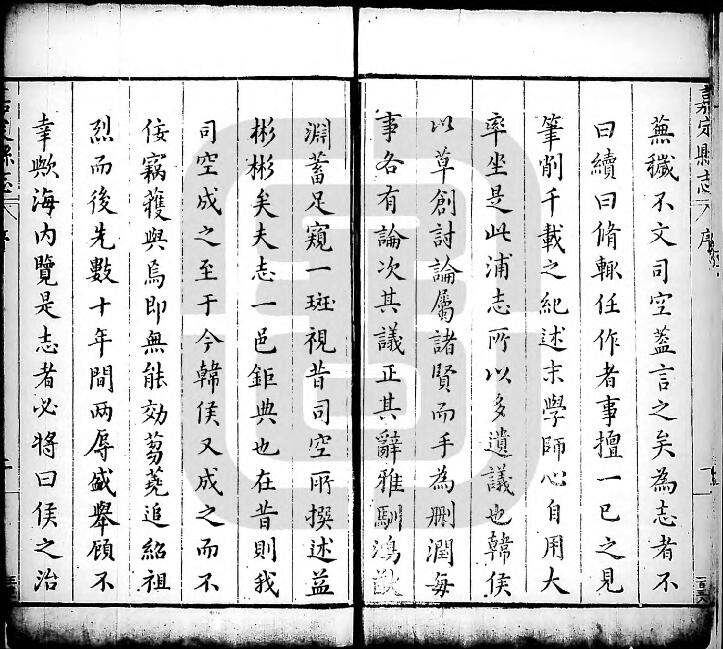 嘉定縣志 序
蕪穢不文司空蓋言之矣為志者不
曰續曰脩輒任作者事擅一已之見
筆削千載之紀述末學師心自用大
率坐是此浦志所以多遺議也韓侯
以草創討論屬諸賢而手為刪潤每
事各有論次其議正其辭雅馴鴻
淵蓄足窺一斑視昔司空所撰述益
彬彬矣夫志一邑鉅典也在昔則我
司空成之至于今韓侯又成之而不
佞竊獲與焉即無能効芻蕘追紹祖
烈而後先數十年間两辱盛舉顧不
幸歟海內覽是志者必將曰侯之治